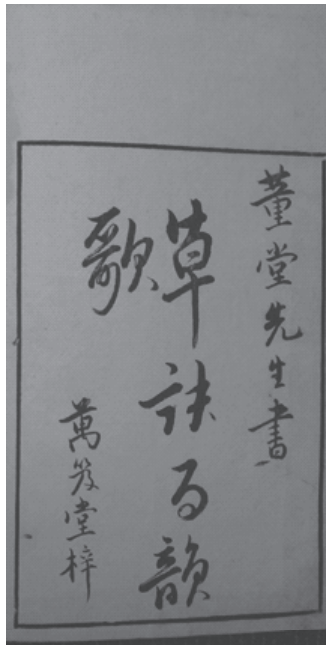 董堂先生書
草訣百韻
歌
萬笈堂梓